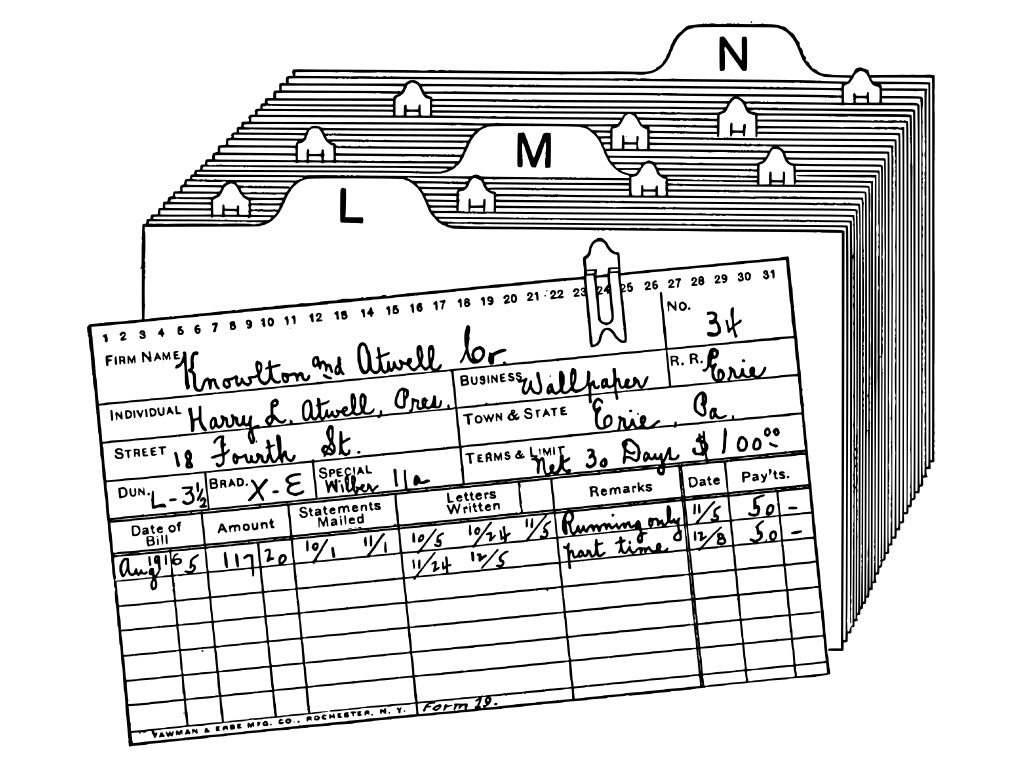 N
M
L
1 2 3 4 5 6 7 8 9 10 11 12 13 14 15 16 17 18 19 20 21 22 23 24 25 26 27 28 29 30 31
FIRM NAME Knowlton and Atwell Co. NO. 34
INDIVIDUAL Harry L. Atwell, Pres. BUSINESS Wallpaper R. R. Erie
STREET 18 Fourth St. TOWN & STATE Erie, Pa.
DUN. L-3½ BRAD. X-E SPECIAL Wilber 11a TERMS & LIMIT Net 30 Days $100⁰⁰
Date of Bill Amount Statements Mailed Letters Written Remarks Date Pay'ts.
Aug 1916 5 117 20 10/1 11/1 10/5 10/24 11/5 Running only 11/5 50 -
11/24 12/5 part time 12/8 50 -
YAWMAN & ERBE MFG. CO., ROCHESTER, N. Y. Form 19.